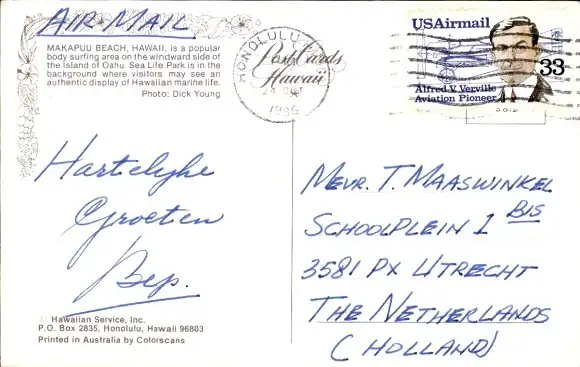 AIR-MAIL
MAKAPUU BEACH, HAWAII, is a popular
body surfing area on the windward side of
the Island of Oahu. Sea Life Park is in the
background where visitors may see an
authentic display of Hawaiian marine life.
Photo: Dick Young
HONOLULU
PostCards
Hawaii
1986
USAirmail
33
Alfred V. Verville
Aviation Pioneer
Hartelyke
Groeten
Bep.
MEVR. T. MAASWINKEL
SCHOOLPLEIN 1 BIS
3581 PX UTRECHT
THE NETHERLANDS
(HOLLAND)
© Hawaiian Service, Inc.
P.O. Box 2835, Honolulu, Hawaii 96803
Printed in Australia by Colorscans